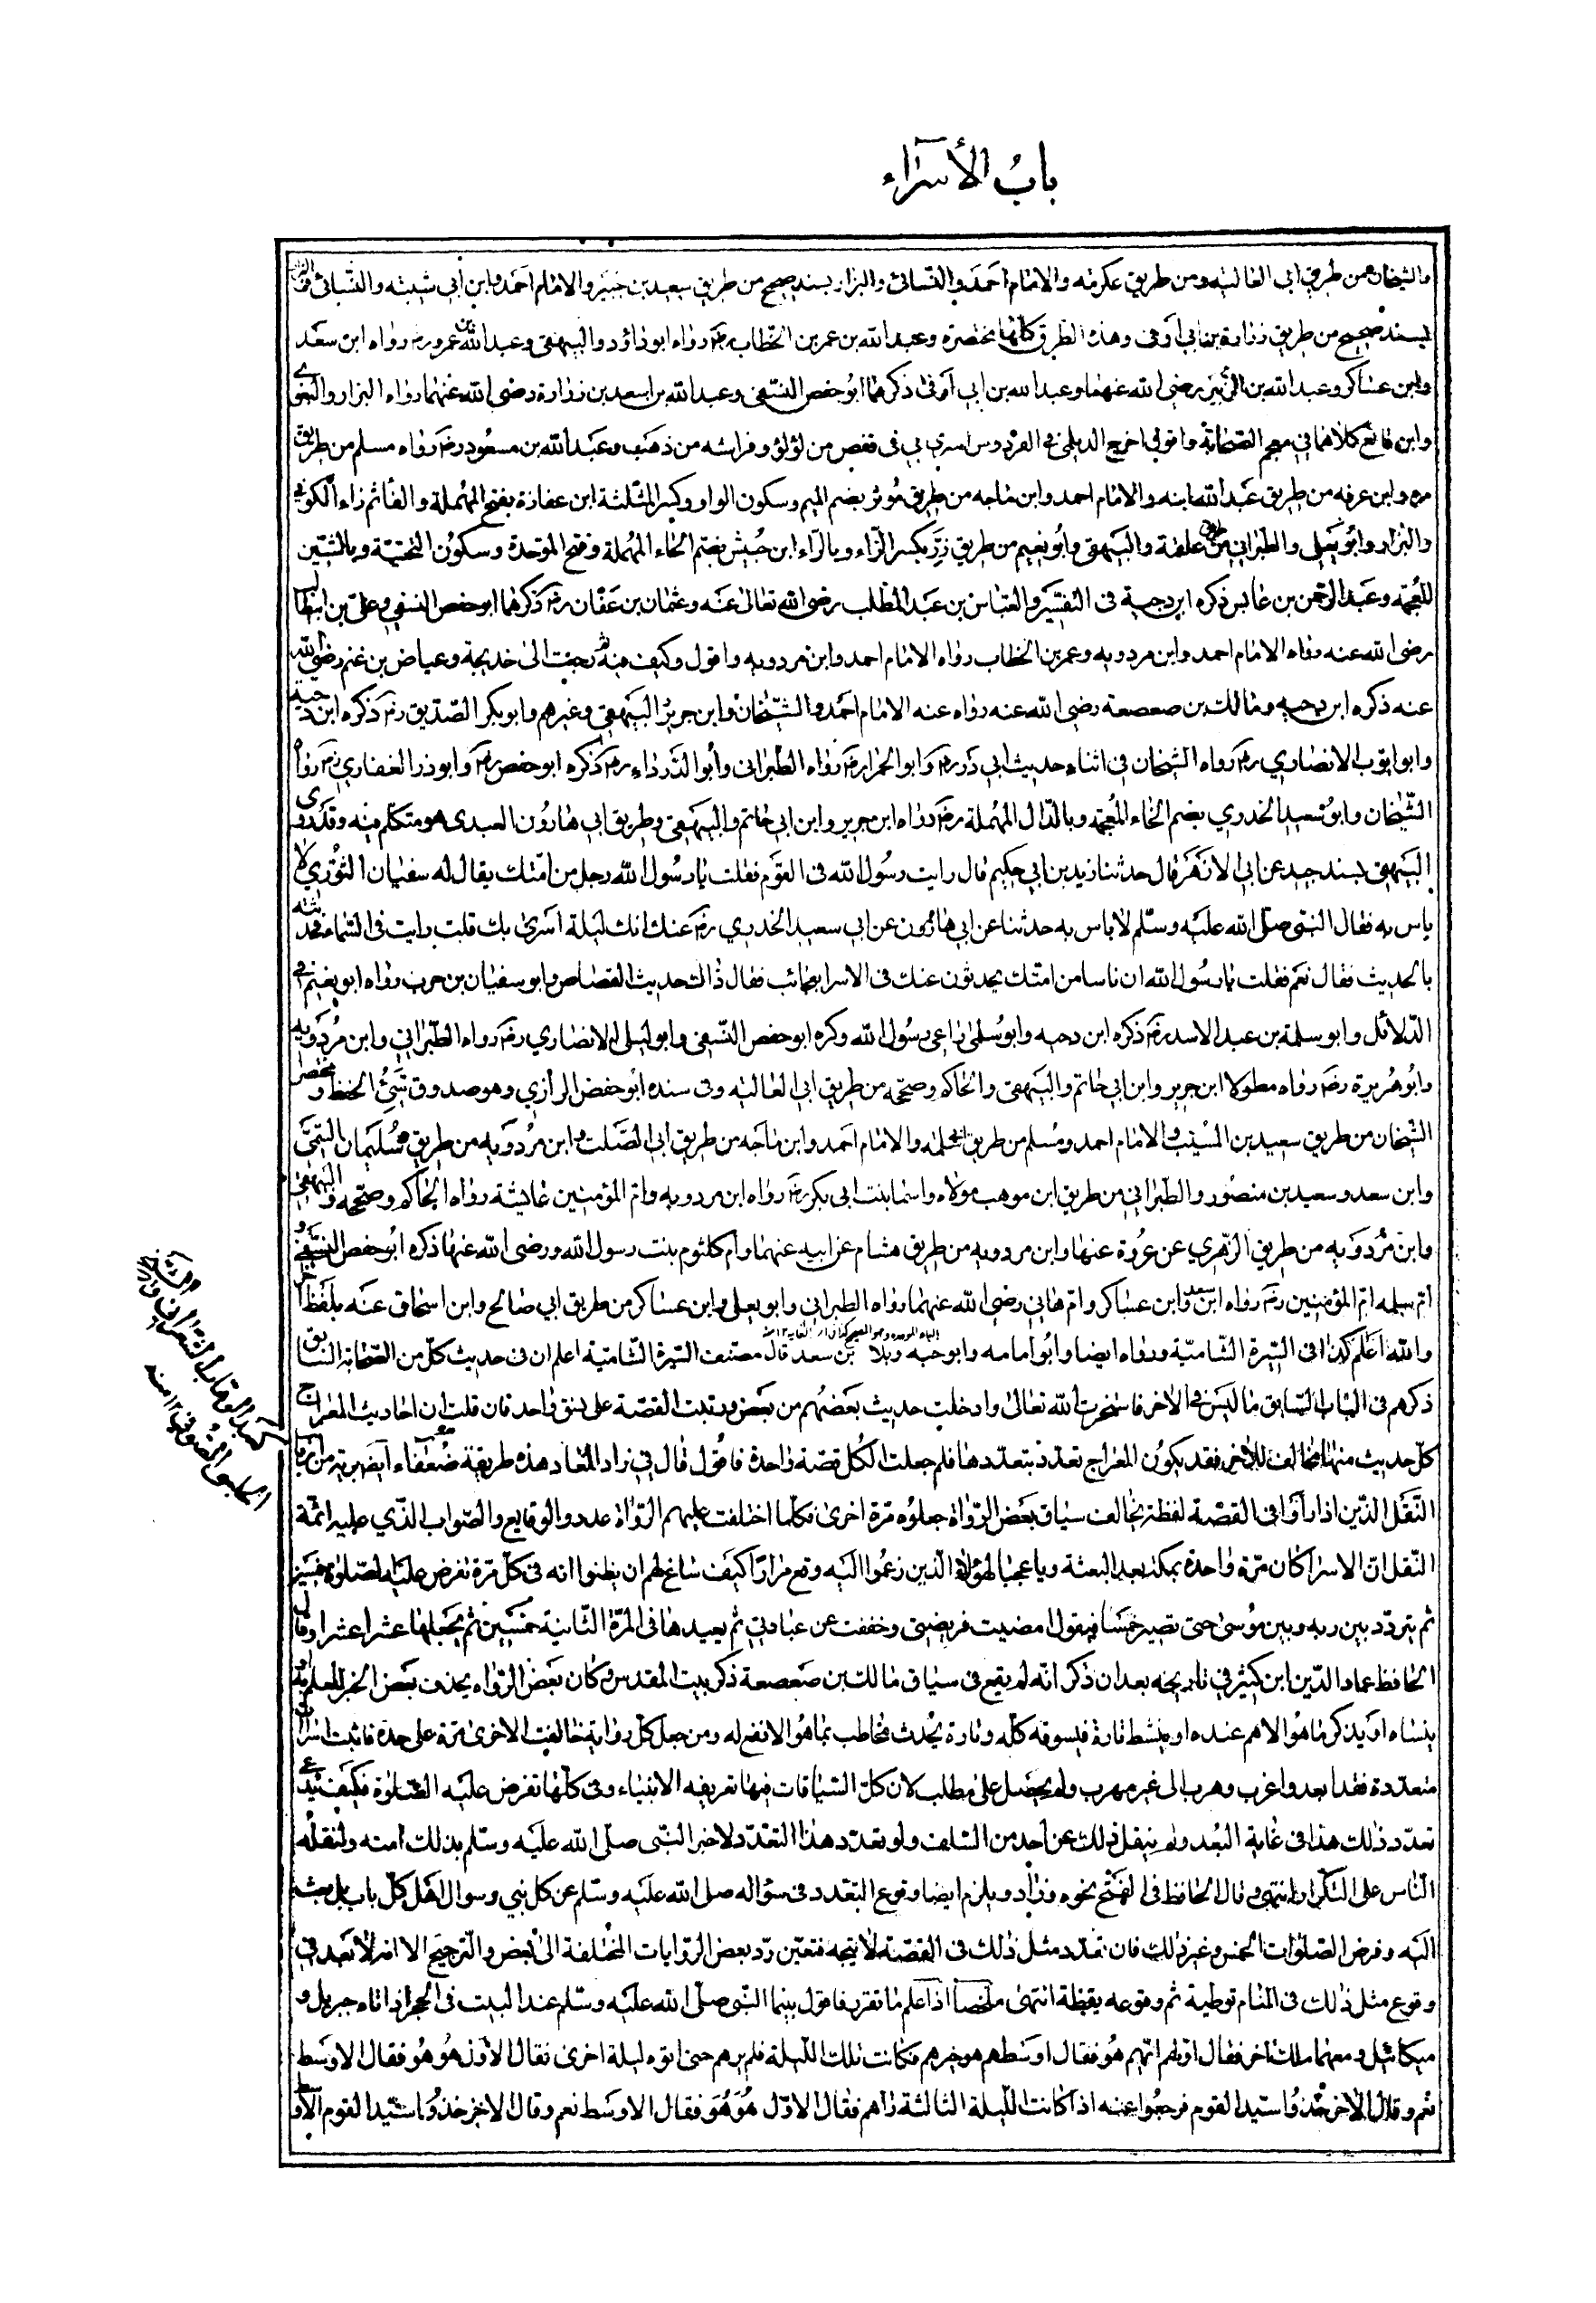 باب الأسراء
والشيخان من طريق ابي العاليه ومن طريق عكرمه والامام احمد والنسائ والبزار بسند صحيح من طريق سعيد بن جبير والامام احمد وابن ابي شيبه والنسائ
بسند صحيح من طريق زرارة بن ابي اوفى وهذه الطرق كلها مختصرة وعبد الله بن عمر بن الخطاب رضہ رواه ابو داؤد والبيهقى وعبد الله بن عمرو رضہ رواه ابن سعد
وابن عساكر وعبد الله بن الزبير رضى الله عنهما وعبد الله بن ابي اوفى ذكرهما ابو حفص النسفى وعبد الله بن اسعد بن زرارة رضى الله عنهما رواه البزار والبغوى
وابن قانع كلاهما في معجم الصحابة واقول اخرج الديلمى فى الفردوس اسرى بي فى قفص من لؤلؤ وفراشه من ذهب وعبد الله بن مسعود رضہ رواه مسلم من طريق
مره وابن عرفه من طريق عبد الله ابنه والامام احمد وابن ماجه من طريق موثر بضم الميم وسكون الواو وكسر المثلثة ابن عفازة بفتح المهملة والفا ثم زاء الكوفى
والبزار وابو يعلى والطبراني من طريق علقمة والبيهقى وابو نعيم من طريق زر بكسر الزاء وبالراء ابن حبيش بضم الحاء المهملة وفتح الموحدة وسكون التحتية وبالشين
المعجمه وعبد الرحمن بن عابس ذكره ابن دحية فى التفسير والعباس بن عبد المطلب رضى الله تعالى عنه وعثمان بن عفان رضہ ذكرهما ابو حفص النسفى وعلى بن ابيطالب
رضى الله عنه رواه الامام احمد وابن مردويه وعمر بن الخطاب رواه الامام احمد وابن مردويه واقول وكيف منه ثم رجعت الى خديجة وعياض بن غنم رضى الله
عنه ذكره ابن دحيه ومالك بن صعصعة رضى الله عنه رواه عنه الامام احمد والشيخان وابن جرير البيهقى وغيرهم وابو بكر الصديق رضہ ذكره ابن دحية
وابو ايوب الانصاري رضہ رواه الشيخان فى اثناء حديث ابي ذر رضہ وابو الحمرا رضہ رواه الطبرانى وأبو الدرداء رضہ ذكره ابو حفص رضہ وابو ذر الغفاري رضہ رواه
الشيخان وابو سعيد الخدري بضم الخاء المعجمه وبالدال المهملة رضہ رواه ابن جرير وابن ابي حاتم والبيهقى وطريق ابي هارون العبدى هو متكلم فيه وقد روى
البيهقى بسند جيد عن ابي الازهر قال حدثنا زيد بن ابي حكيم قال رايت رسول الله فى النوم فقلت يا رسول الله رجل من امتك يقال له سفيان الثورى لا
باس به فقال النبى صلى الله عليه وسلم لا باس به حدثنا عن ابي هارون عن ابي سعيد الخدري رضہ عنك انك ليلة اسرى بك قلت رايت فى السماء فحدثته
بالحديث فقال نعم فقلت يا رسول الله ان ناسا من امتك يحدثون عنك فى الاسرا بعجائب فقال ذاك حديث القصاص وابو سفيان بن حرب رواه ابو نعيم فى
الدلائل وابو سلمة بن عبد الاسد رضہ ذكره ابن دحيه وابو سلمى راعى رسول الله وكره ابو حفص النسفى وابو ليلى الانصاري رضہ رواه الطبراني وابن مردويه
وابو هريرة رضہ رواه مطولا ابن جرير وابن ابي حاتم والبيهقى والحاكم وصححه من طريق ابي العاليه وفى سنده ابو حفص الرازي وهو صدوق سيئ الحفظ ومختصرا
الشيخان من طريق سعيد بن المسيب والامام احمد ومسلم من طريق ابى سلمه والامام احمد وابن ماجه من طريق ابي الصلت وابن مردويه من طريق سليمان التيمى
وابن سعد وسعيد بن منصور والطبراني من طريق ابن موهب مولاه واسما بنت ابي بكر رضہ رواه ابن مردويه وام المؤمنين عايشة رواه الحاكم وصححه والبيهقى
وابن مردويه من طريق الزهري عن عروة عنها وابن مردويه من طريق هشام عن ابيه عنها وام كلثوم بنت رسول الله ورضى الله عنها ذكره ابو حفص النسفى و
ام سلمه ام المؤمنين رضہ رواه ابن سعد وابن عساكر وام هاني رضى الله عنهما رواه الطبراني وابو يعلى وابن عساكر من طريق ابي صالح وابن اسحاق عنه بلفظ اخر
والله اعلم كذا فى السيرة الشامية ورواه ايضا وابو امامه وابو حبه وبلال بن سعد قال مصنف السيرة الشامية اعلم ان فى حديث كل من الصحابة السابق
ذكرهم فى الباب السابق ما ليس فى الاخر فاستخرت الله تعالى وادخلت حديث بعضهم من بعض ورتبت القصة على نسق واحد فان قلت ان احاديث المعراج
كل حديث منها مخالف للاخر فقد يكون المعراج تعدد بتعددها فلم جعلت الكل قصة واحدة فاقول قال فى زاد المعاد هذه طريقة ضعفاء الظاهرية من ارباب
النقل الذين اذا رأوا فى القصة لفظة تخالف سياق بعض الرواة جعلوه مرة اخرى فكلما اختلفت عليهم الرواة عددوا الوقايع والصواب الذي عليه ائمة
النقل ان الاسرا كان مرة واحدة بمكة بعد البعثة ويا عجبا لهؤلاء الذين زعموا انه وقع مرارا كيف ساغ لهم ان يظنوا انه فى كل مرة تفرض عليه الصلوة خمسين
ثم يتردد بين ربه وبين موسى حتى تصير خمسا فيقول امضيت فريضتى وخففت عن عبادى ثم يعيدها فى المرة الثانية خمسين ثم يجعلها عشرا عشرا وقال
الحافظ عماد الدين ابن كثير في تاريخه بعد ان ذكر انه لم يقع فى سياق مالك بن صعصعة ذكر بيت المقدس وكان بعض الرواه يحذف بعض الخبر للعلم به او
ينساه او يذكر ما هو الاهم عنده او ينشط تارة فيسوقه كله وتارة يحدث مخاطبه بما هو الانفع له ومن جعل كل رواية خالفت الاخرى مرة على حدة فاثبت اسراات
متعددة فقد ابعد واغرب وهرب الى غير مهرب ولم يحصل على مطلب لان كل السياقات فيها تعريفه الانبياء وفى كلها تفرض عليه الصلوة فكيف يدعى
تعدد ذلك هذا فى غاية البعد ولم ينقل ذلك عن احد من السلف ولو تعدد هذا التعدد لاخبر النبى صلى الله عليه وسلم بذلك امته ولنقله
الناس على التكرار انتهى وقال الحافظ فى الفتح نحوه وزاد ويلزم ايضا وقوع التعدد فى سؤاله صلى الله عليه وسلم عن كل نبي وسوال اهل كل باب بل بعث
اليه وفرض الصلوات الخمس وغير ذلك فان تعدد مثل ذلك فى القصة لا يتجه فتعين رد بعض الروايات المختلفة الى بعض والترجيح الا انه لا بعد فى
وقوع مثل ذلك فى المنام توطية ثم وقوعه يقظة انتهى ملخصا اذا علم ما تقرر فاقول بينما النبى صلى الله عليه وسلم عند البيت فى الحجر اذ اتاه جبريل و
ميكائيل ومعهما ملك اخر فقال اولهم ايهم هو فقال اوسطهم هو خيرهم فكانت تلك الليلة فلم يرهم حتى اتوه ليلة اخرى فقال الاول هو هو فقال الاوسط
نعم وقال الاخر خذوا سيد القوم فرجعوا عنه اذا كانت الليلة الثالثة راهم فقال الاول هو هو فقال الاوسط نعم وقال الاخر خذوا سيد القوم الاوسط